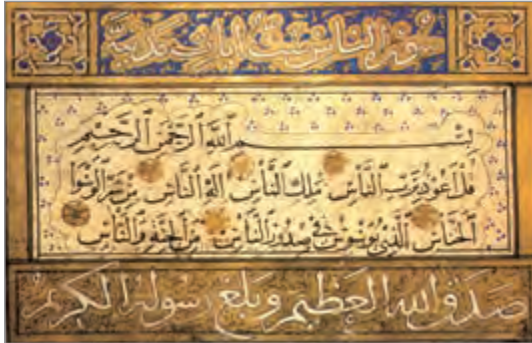 سورة الناس ست ايات مدنية
بِسْمِ ٱللَّهِ ٱلرَّحْمَنِ ٱلرَّحِيمِ
قُلْ اَعُوذُ بِرَبِّ ٱلنَّاسِ مَلِكِ ٱلنَّاسِ اِلَهِ ٱلنَّاسِ مِنْ شَرِّ ٱلْوَسْوَاسِ
ٱلْخَنَّاسِ ٱلَّذِي يُوَسْوِسُ فِي صُدُورِ ٱلنَّاسِ مِنَ ٱلْجِنَّةِ وَٱلنَّاسِ
صدق الله العظيم وبلغ رسوله الكريم